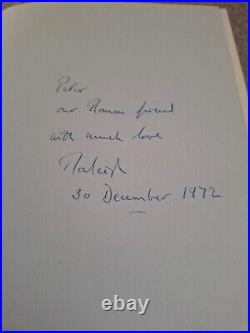 Peter
our Roman friend
with much love
Raleigh
30 December 1972